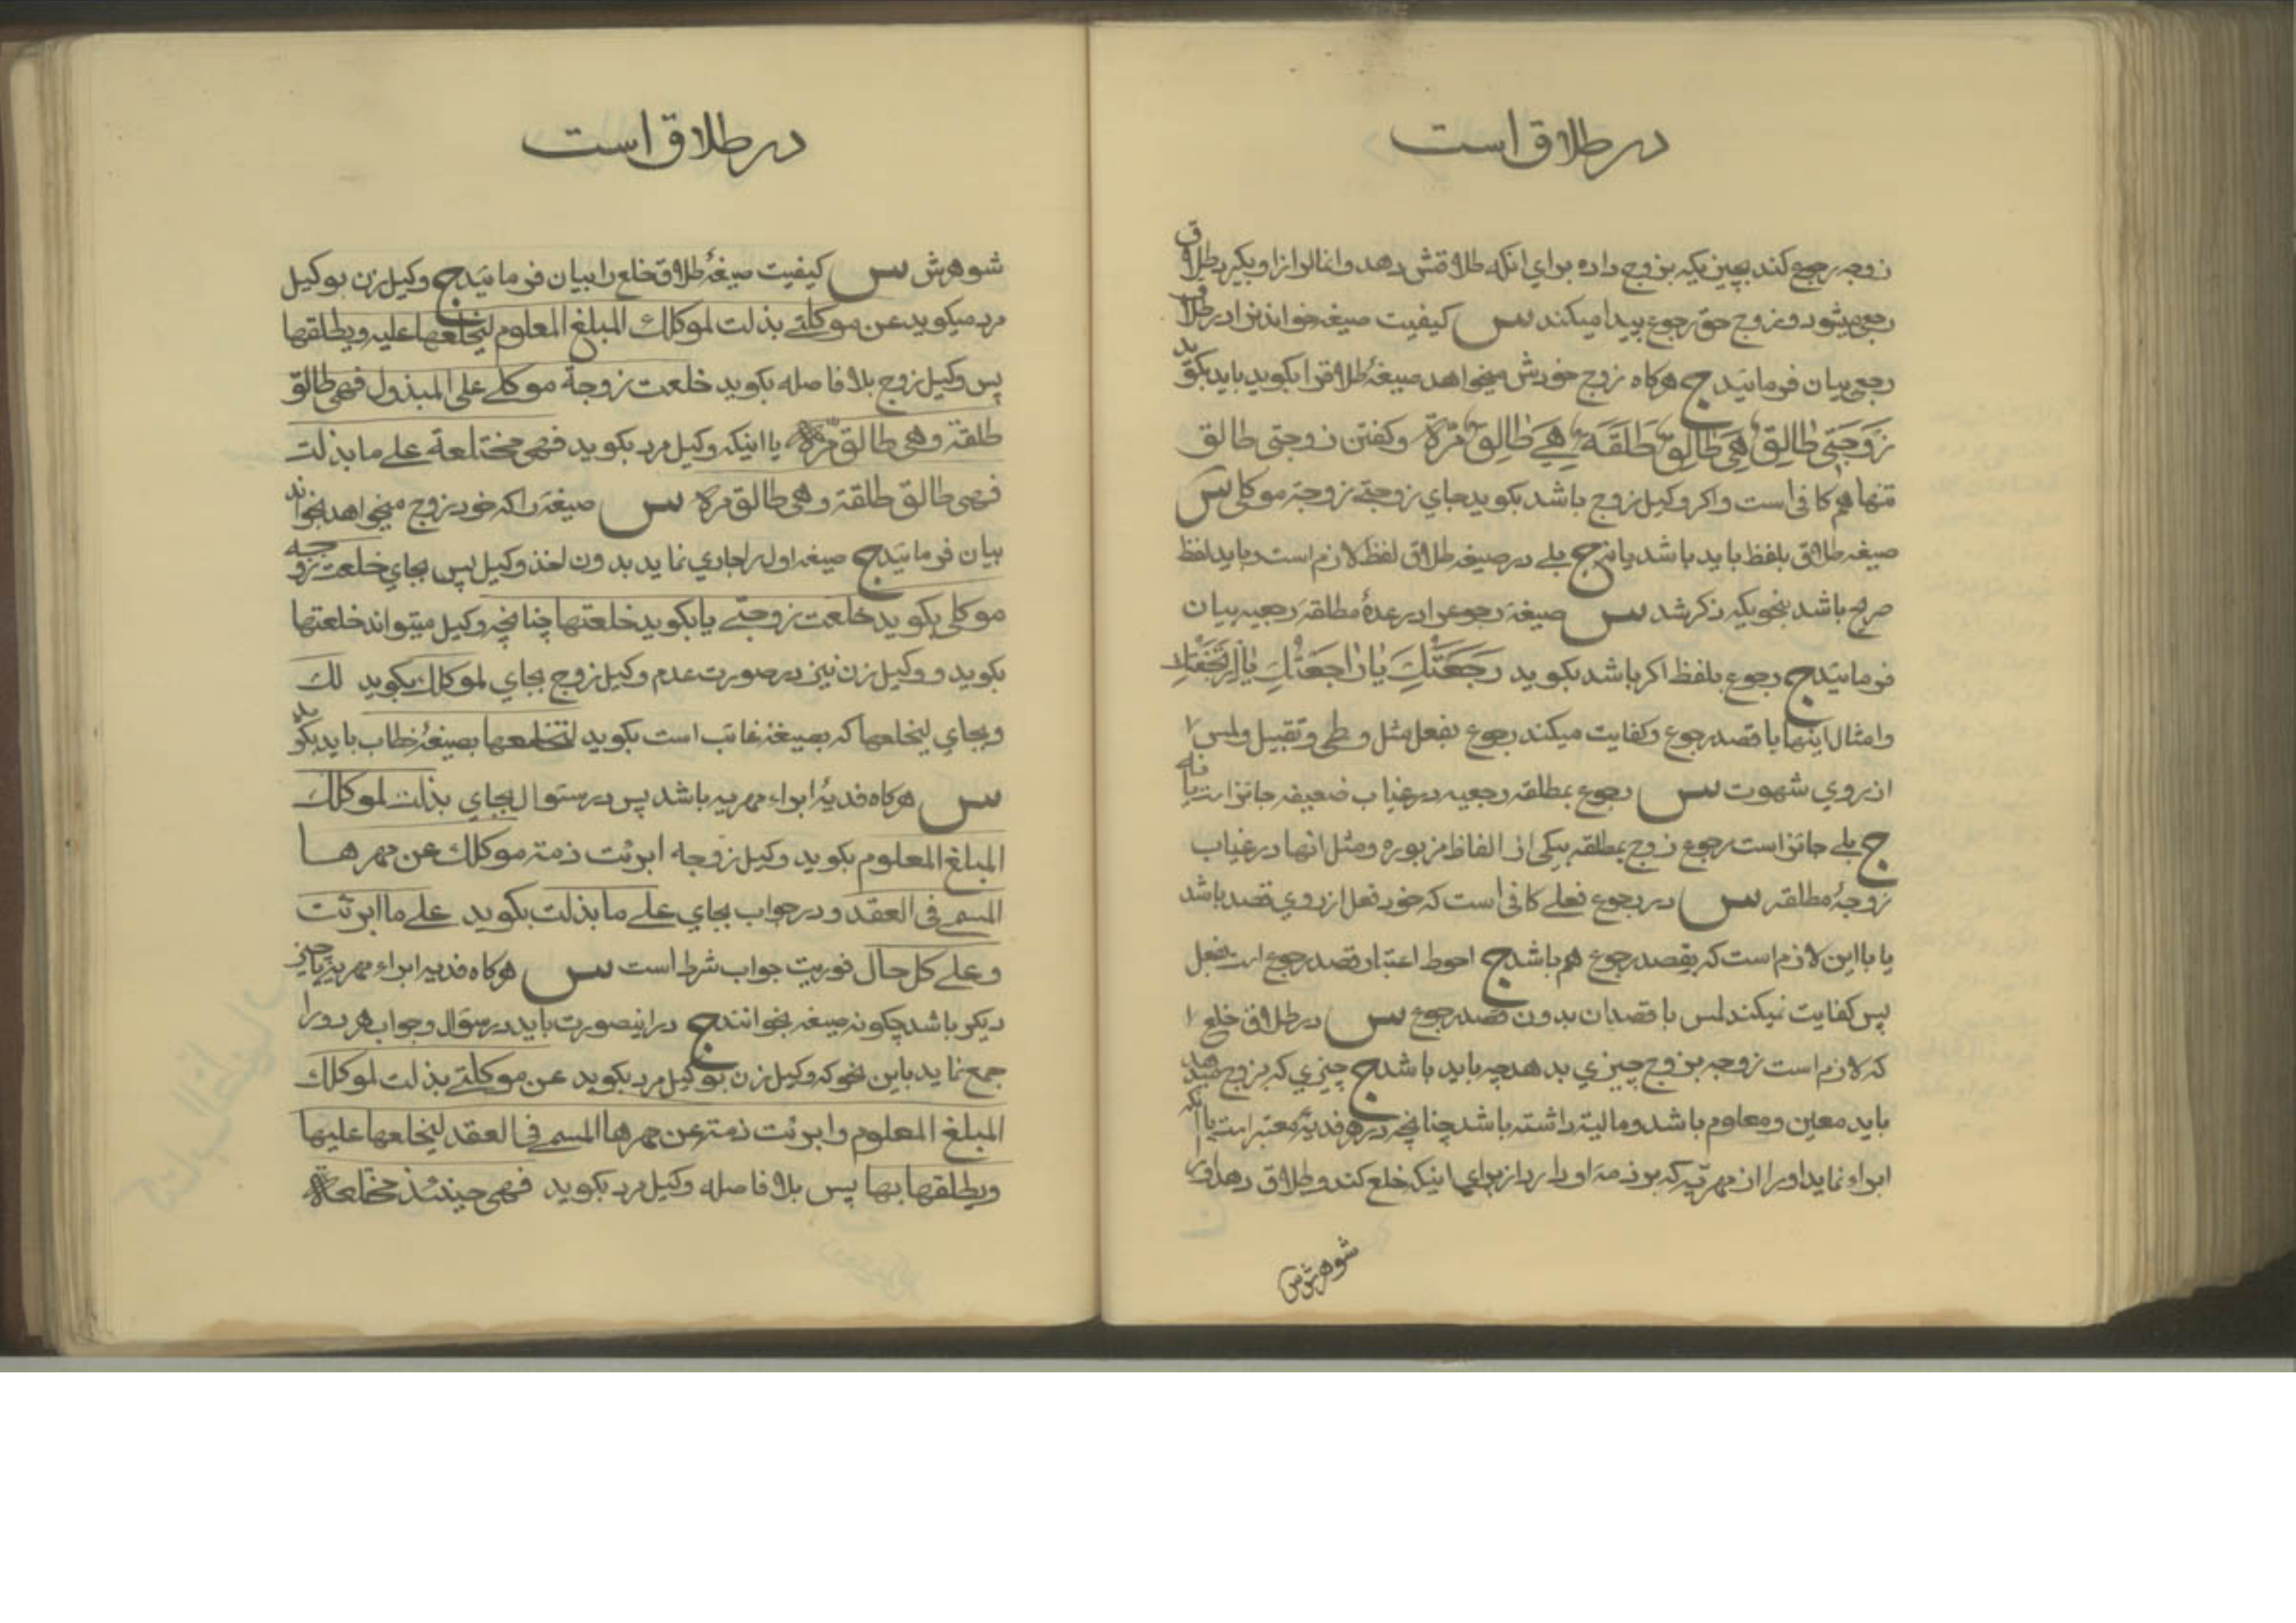 در طلاق است
زوجه رجوع کند بچیزیکه بزوج داده برای انکه طلاقش دهد وانمالرا از او بگیرد طلاق
رجعی میشود و زوج حق رجوع پیدا میکند س کیفیت صیغه خواندنرا در طلاق
رجعی بیان فرمائید ج هرکاه زوج خودش میخواهد صیغهٔ طلاقرا بکوید باید بکوید
زَوجَتی طالِق هِیَ طالِق طَلقَة هِیَ طالِق مرّة وکفتن زوجتی طالق
تنها هم کافی است واکر وکیل زوج باشد بکوید بجای زوجتی زوجة موکلی س
صیغه طلاق بلفظ باید باشد یا نه ج بلی در صیغه طلاق لفظ لازم است و باید لفظ
صریح باشد بنحویکه ذکر شد س صیغه رجوعرا در عدهٔ مطلقه رجعیه بیان
فرمائید ج رجوع بلفظ اکر باشد بکوید رَجَعتُكِ یا راجَعتُكِ یا
وامثال اینها با قصد رجوع وکفایت میکند رجوع بفعل مثل وطی وتقبیل ولمس
از روی شهوت س رجوع بمطلقه رجعیه در غیاب ضعیفه جائز است یا نه
ج بلی جائز است رجوع زوج بمطلقه بیکی از الفاظ مزبوره ومثل انها در غیاب
زوجهٔ مطلقه س در رجوع فعلی کافی است که خود فعل از روی قصد باشد
یا با این لازم است که بقصد رجوع هم باشد ج احوط اعتبار قصد رجوع است بفعل
پس کفایت نمیکند لمس با قصدان بدون قصد رجوع س در طلاق خلع
که لازم است زوجه بزوج چیزی بدهد چه باید باشد ج چیزی که بزوج میدهد
باید معین ومعلوم باشد ومالیة داشته باشد چنانچه در هر فدیه معتبر است یا انکه
ابراء نماید اورا از مهریه که بر ذمه او دارد از برای اینکه خلع کند وطلاق دهد اورا
شوهرش س
در طلاق است
شوهرش س کیفیت صیغهٔ طلاق خلع را بیان فرمائید ج وکیل زن بوکیل
مرد میکوید عن موکلتی بذلت لموکلك المبلغ المعلوم لیخلعها علیه ویطلقها
پس وکیل زوج بلا فاصله بکوید خلعت زوجة موکلی علی المبذول فهی طالق
طلقة وهی طالق مرّة یا اینکه وکیل مرد بکوید فهی مختلعة علی ما بذلت
فهی طالق طلقة وهی طالق مرة س صیغه را که خود زوج میخواهد بخواند
بیان فرمائید ج صیغه اولرا جاری نماید بدون اخذ وکیل پس بجای خلعت زوجه
موکلی بکوید خلعت زوجتی یا بکوید خلعتها چنانچه وکیل میتواند خلعتها
بکوید و وکیل زن نیز در صورت عدم وکیل زوج بجای لموکلك بکوید لك
وبجای لیخلعها که بصیغهٔ غائب است بکوید لتخلعها بصیغهٔ خطاب باید بکوید
س هرکاه فدیهٔ ابراء مهریه باشد پس در سئوال بجای بذلت لموکلك
المبلغ المعلوم بکوید وکیل زوجه ابرئت ذمة موکلك عن مهرها
المسمی فی العقد ودر جواب بجای علی ما بذلت بکوید علی ما ابرئت
وعلی کل حال فوریت جواب شرط است س هرکاه فدیه ابراء مهریه با چیز
دیکر باشد چکونه صیغه بخوانند ج در اینصورت باید در سؤال وجواب هر دورا
جمع نماید باین نحو که وکیل زن بوکیل مرد بکوید عن موکلتی بذلت لموکلك
المبلغ المعلوم وابرئت ذمته عن مهرها المسمی فی العقد لیخلعها علیها
ویطلقها بها پس بلا فاصله وکیل مرد بکوید فهی حینئذ مختلعة